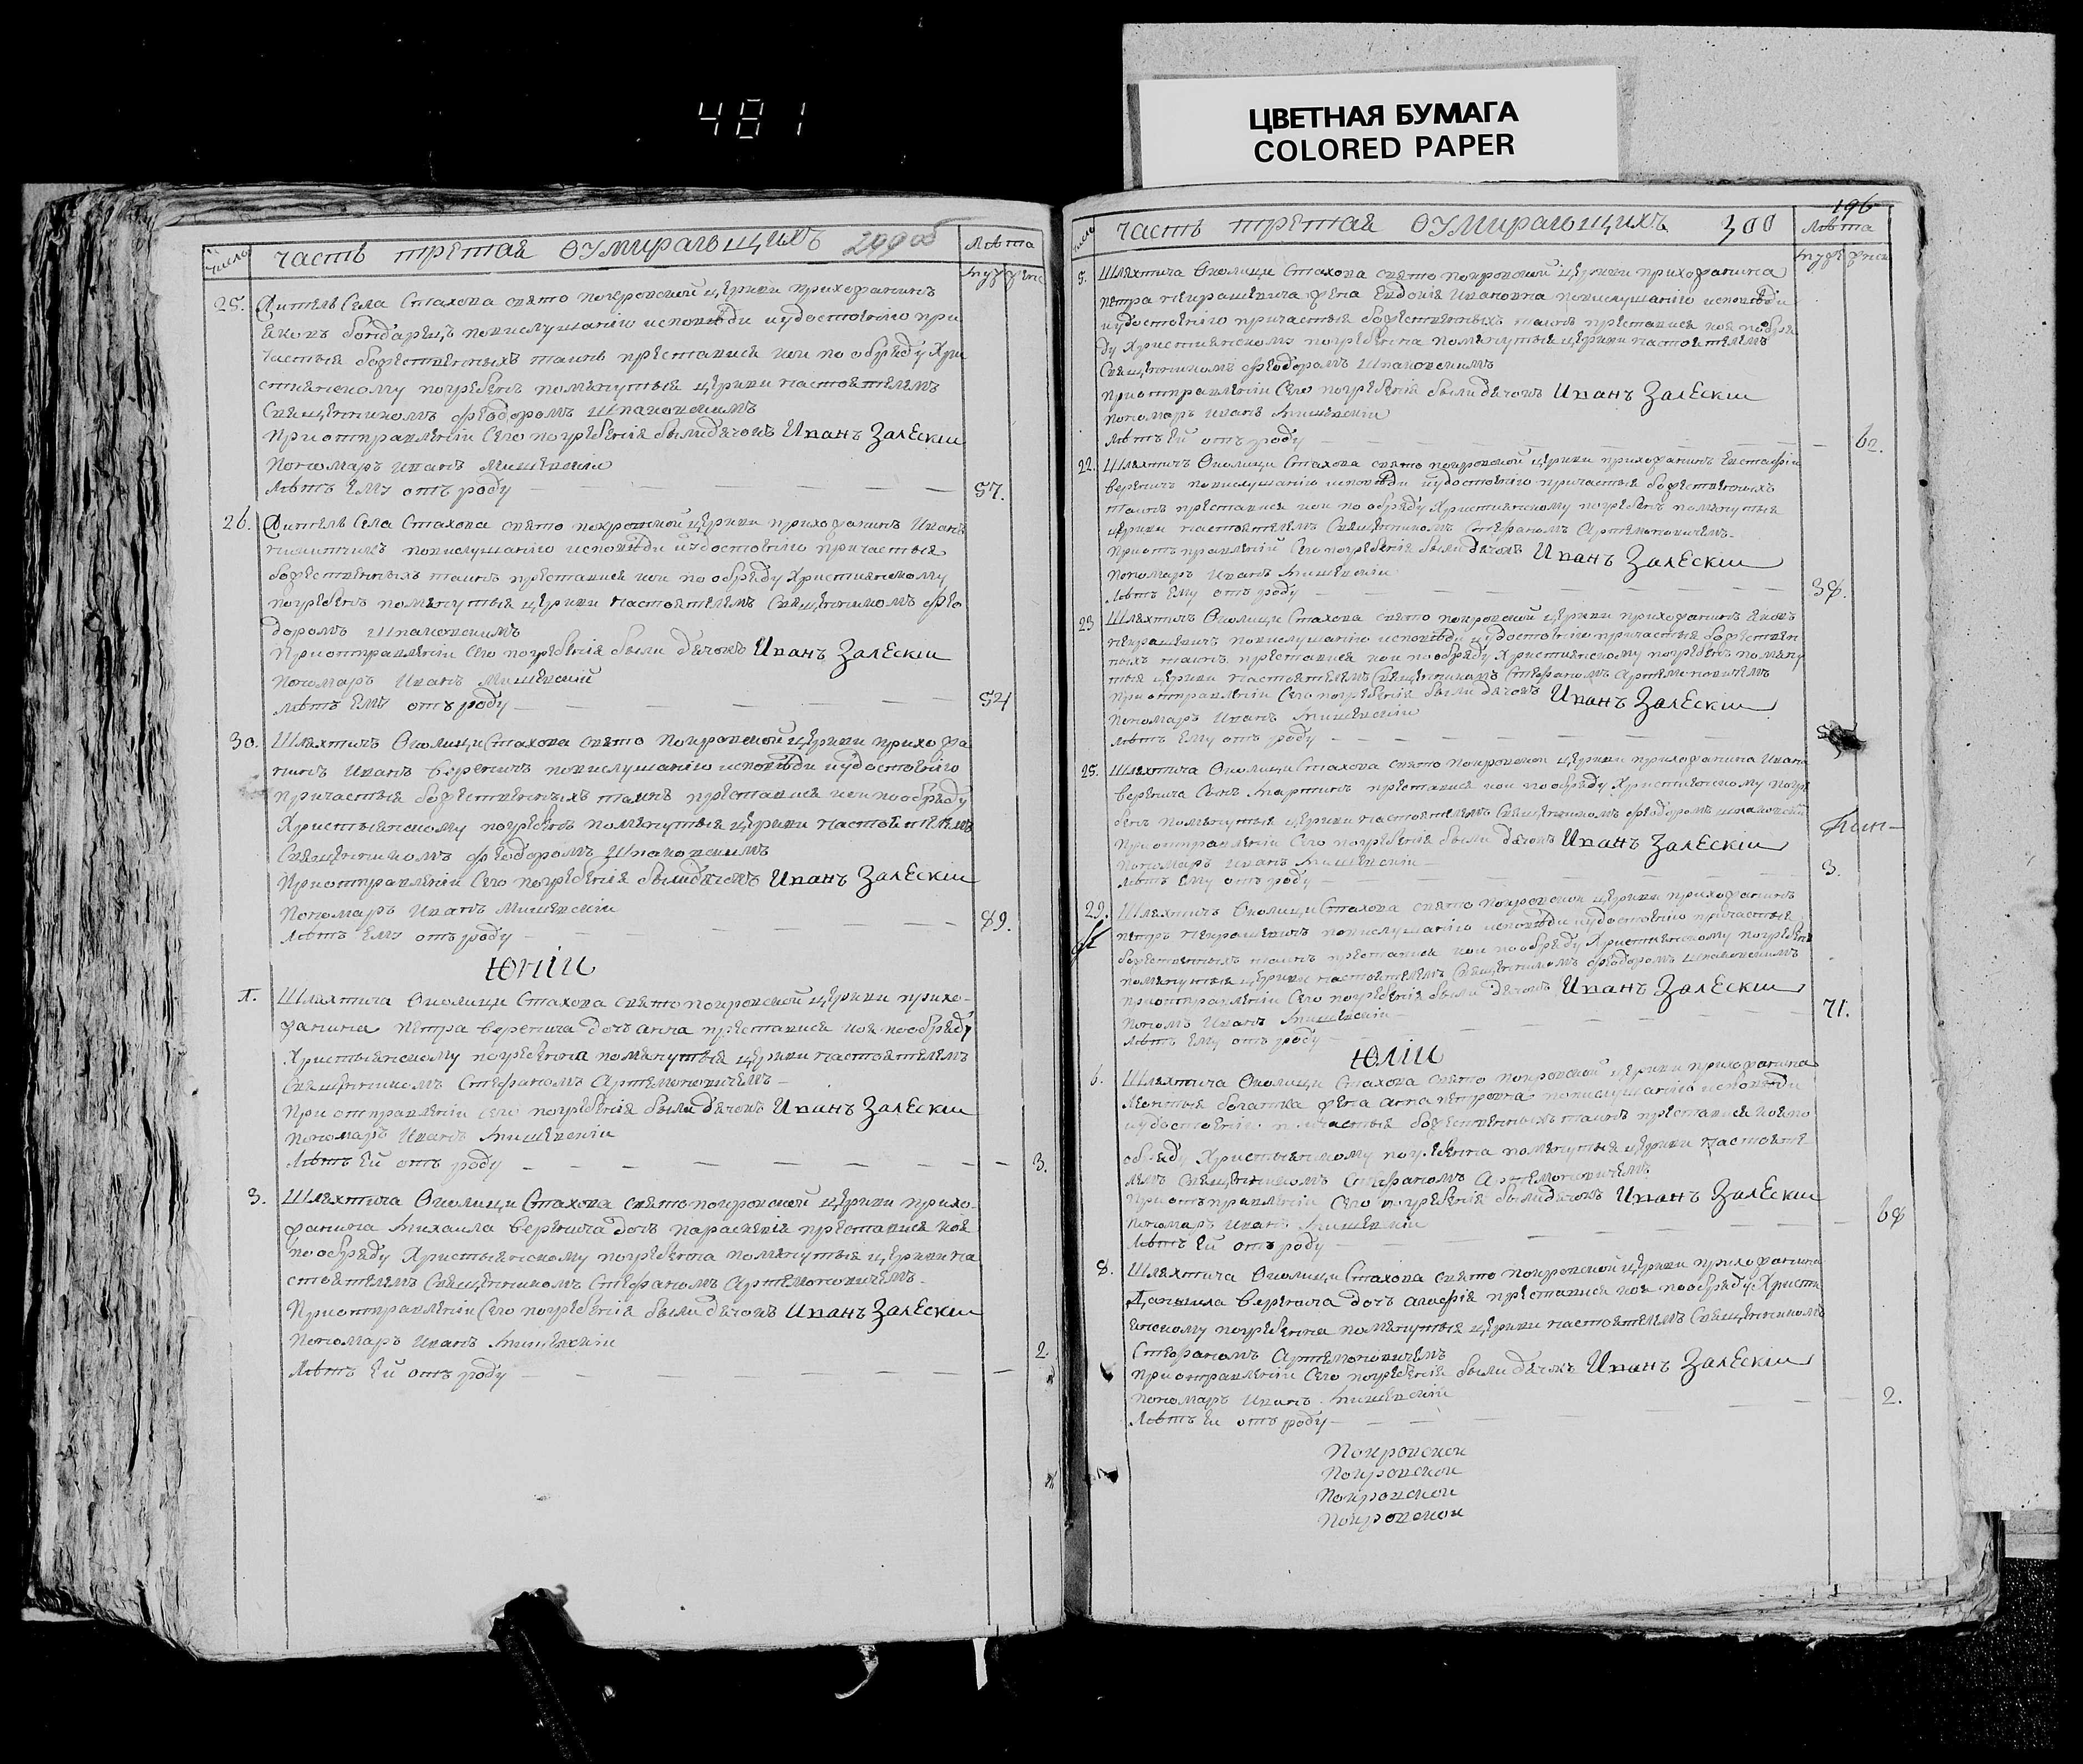 481
ЦВЕТНАЯ БУМАГА
COLORED PAPER
число
часть третая о умирающихъ
299об
Лѣта
муж женс
25. Житель Села Стахова свято покровской церкви прихожанинъ
Яковъ бондарецъ повислушанію исповѣди иудостоенію при
частыя божественныхъ таинъ преставися кои по обряду Хри
стиянскому погребенъ помянутыя церкви настоятелемъ
Священникомъ феодоромъ Шпаковскимъ
При отправленіи Сего погребенія были дячокъ Иванъ Залескіи
Пономаръ Иванъ Мишевскіи
Лѣтъ Ему отъ роду 57.
26. Житель Села Стахова свято покровской церкви прихожанинъ Иванъ
повислушанію исповѣди иудостоенію причастыя
божественныхъ таинъ преставися кои по обряду Християнскому
погребенъ помянутыя церкви настоятелемъ Священникомъ фео
доромъ Шпаковскимъ
При отправленіи Сего погребенія были дячокъ Иванъ Залескіи
Пономаръ Иванъ Мишевскій
Лѣтъ Ему отъ роду 54
30. Шляхтичъ Околици Стахова свято Покровской церкви прихожа
нинъ Иванъ вереничъ повислушанію исповѣди иудостоенію
Причастыя божественныхъ таинъ преставися кои пообряду
Христыянскому погребенъ помянутыя церкви настоятелемъ
Священникомъ феодоромъ Шпаковскимъ
При отправленіи Сего погребенія были дячокъ Иванъ Залескіи
Пономаръ Иванъ Мишевскіи
Лѣтъ Ему отъ роду 89.
Юніи
1. Шляхтича Околици Стахова свято покровской церкви прихо-
жанина Петра веренича дочъ анна преставися коя пообряду
Христыянскому погребенна помянутыя церкви настоятелемъ
Священникомъ Стефаномъ Артемоновичемъ
При отправленіи Сего погребенія были дячокъ Иванъ Залескіи
Пономаръ Иванъ Мишевскіи
Лѣтъ Ей отъ роду 3.
3. Шляхтича Околици Стахова свято покровской церкви прихо-
жанина Михаила веренича дочъ параскевія преставися коя
по обряду Христыянскому погребенна помянутыя церкви на
стоятелемъ Священникомъ Стефаномъ Артемоновичемъ
При отправленіи Сего погребенія были дячокъ Иванъ Залескіи
Пономаръ Иванъ Мишевскіи
Лѣтъ Ей отъ роду 2.
число
часть третая о умирающихъ
300
196
Лѣта
муже женск
5. Шляхтича Околици Стахова свято покровской церкви прихожанина
Петра жена Евдокія Ивановна повислушанію исповѣди
иудостоенію причастыя божественныхъ таинъ преставися коя пообря
ду Християнскому погребенна помянутыя церкви настоятелемъ
Священникомъ феодоромъ Шпаковскимъ
При отправленіи Сего погребенія были дячокъ Иванъ Залескіи
Пономаръ Иванъ Мишевскіи
Лѣтъ Ей отъ роду 62.
22. Шляхтичъ Околици Стахова свято покровской церкви прихожанинъ Евстафіи
вереничъ повислушанію исповѣди иудостоенію причастыя божественныхъ
таинъ преставися кои по обряду Християнскому погребенъ помянутыя
церкви настоятелемъ Священникомъ Стефаномъ Артемоновичемъ
При отправленіи Сего погребенія были дячокъ Иванъ Залескіи
Пономаръ Иванъ Мишевскіи
Лѣтъ Ему отъ роду 38.
23 Шляхтичъ Околици Стахова свято покровской церкви прихожанинъ Яковъ
повислушанію исповѣди иудостоенію причастыя божествен
ныхъ таинъ преставися кои пообряду Християнскому погребенъ помяну
тыя церкви настоятелемъ Священникомъ Стефаномъ Артемоновичемъ
При отправленіи Сего погребенія были дячокъ Иванъ Залескіи
Пономаръ Иванъ Мишевскіи
Лѣтъ Ему отъ роду
25. Шляхтича Околици Стахова свято покровской церкви прихожанина Ивана
веренича Сынъ Мартинъ преставися кои по обряду Християнскому погре
бенъ помянутыя церкви настоятелемъ Священникомъ феодоромъ шпаковскимъ
При отправленіи Сего погребенія были дячокъ Иванъ Залескіи
Пономаръ Иванъ Мишевскіи
Лѣтъ Ему отъ роду 3.
29. Шляхтичъ Околици Стахова свято покровской церкви прихожанинъ
Петръ повислушанію исповѣди иудостоенію причастыя
божественныхъ таинъ преставися кои пообряду Християнскому погребенъ
помянутыя церкви настоятелемъ Священникомъ феодоромъ шпаковскимъ
При отправленіи Сего погребенія были дячокъ Иванъ Залескіи
Поном Иванъ Мишевскіи
Лѣтъ Ему отъ роду 71.
Юліи
6. Шляхтича Околици Стахова свято покровской церкви прихожанина
Леонтыя богатка жена анна петровна повислушанію исповѣди
иудостоенію причастыя божественныхъ таинъ преставися коя по
обряду Христыянскому погребенна помянутыя церкви настояте
лемъ Священникомъ Стефаномъ Артемоновичемъ
При отправленіи Сего погребенія были дячокъ Иванъ Залескіи
Пономаръ Иванъ Мишевскіи
Лѣтъ Ей отъ роду 68
8. Шляхтича Околици Стахова свято покровской церкви прихожанина
Даныила веренича дочъ агафія преставися коя пообряду Христи
янскому погребенна помянутыя церкви настоятелемъ Священникомъ
Стефаномъ Артемоновичемъ
При отправленіи Сего погребенія были дячокъ Иванъ Залескіи
Пономаръ Иванъ Мишевскіи
Лѣтъ Ей отъ роду 2.
Покровской
Покровской
Покровской
Покровской